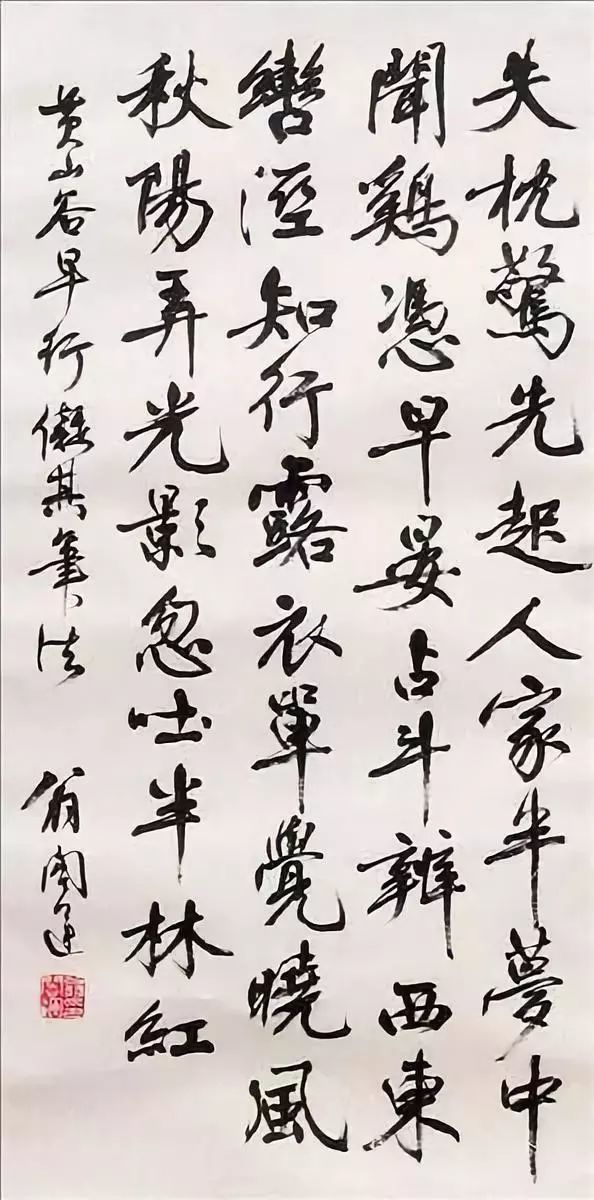 失枕驚先起人家半夢中
聞鷄憑早晏占斗辨西東
轡溼知行露衣單覺曉風
秋陽弄光影忽吐半林紅
黄山谷早行儗其筆法 翁闓運